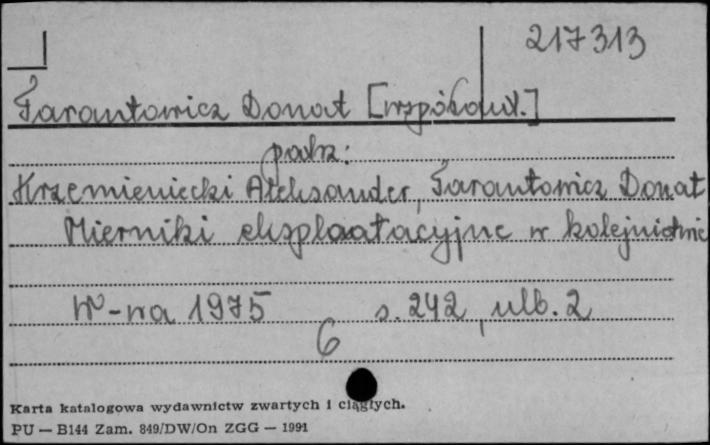 217313
Tarantowicz Donat [współaut.]
patrz:
Krzemieniecki Aleksander, Tarantowicz Donat
Mierniki eksploatacyjne w kolejnictwie
W-wa 1975 s. 242, ulb. 2
6
Karta katalogowa wydawnictw zwartych i ciągłych.
PU — B144 Zam. 849/DW/On ZGG — 1991